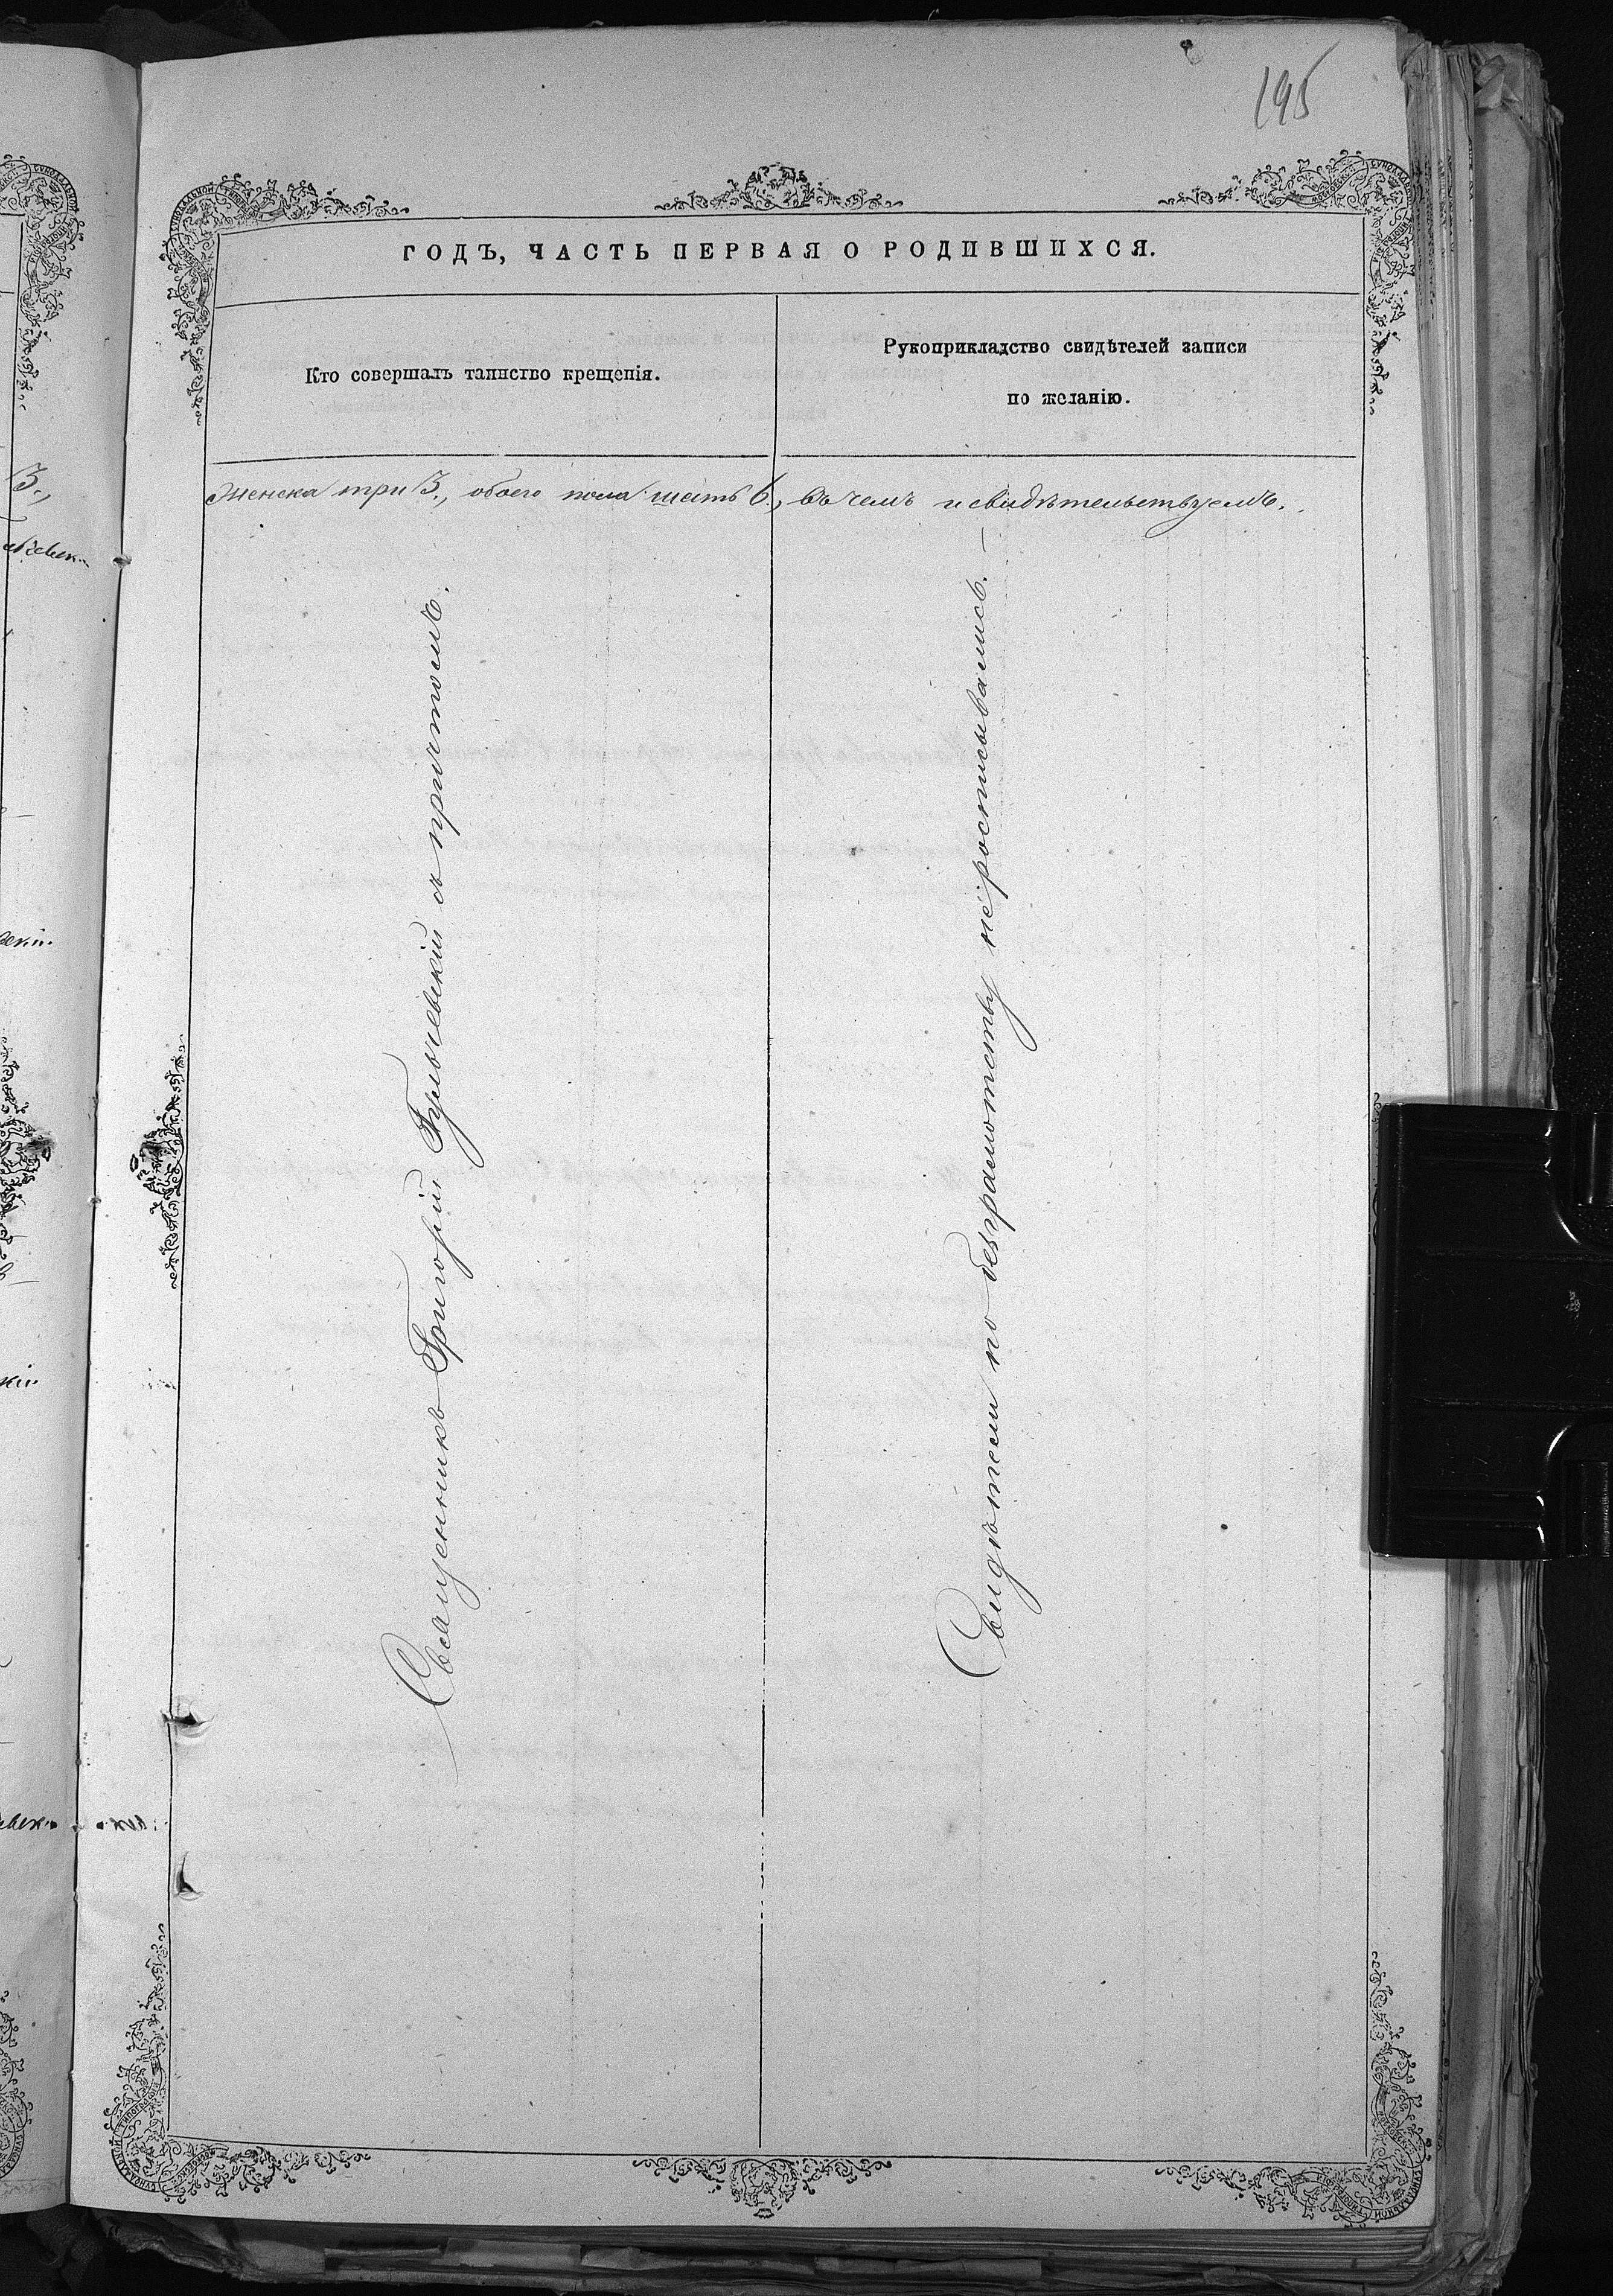 195
ГОДЪ, ЧАСТЬ ПЕРВАЯ О РОДИВШИХСЯ.
Кто совершалъ таинство крещенія.
Рукоприкладство свидѣтелей записи
по желанію.
женска три 3., обоего пола шесть 6., въ чемъ и свидѣтельствуемъ.
Священникъ Григорій Гульчевскій съ причтомъ.
Свидѣтели по безграмотству не росписывались. —